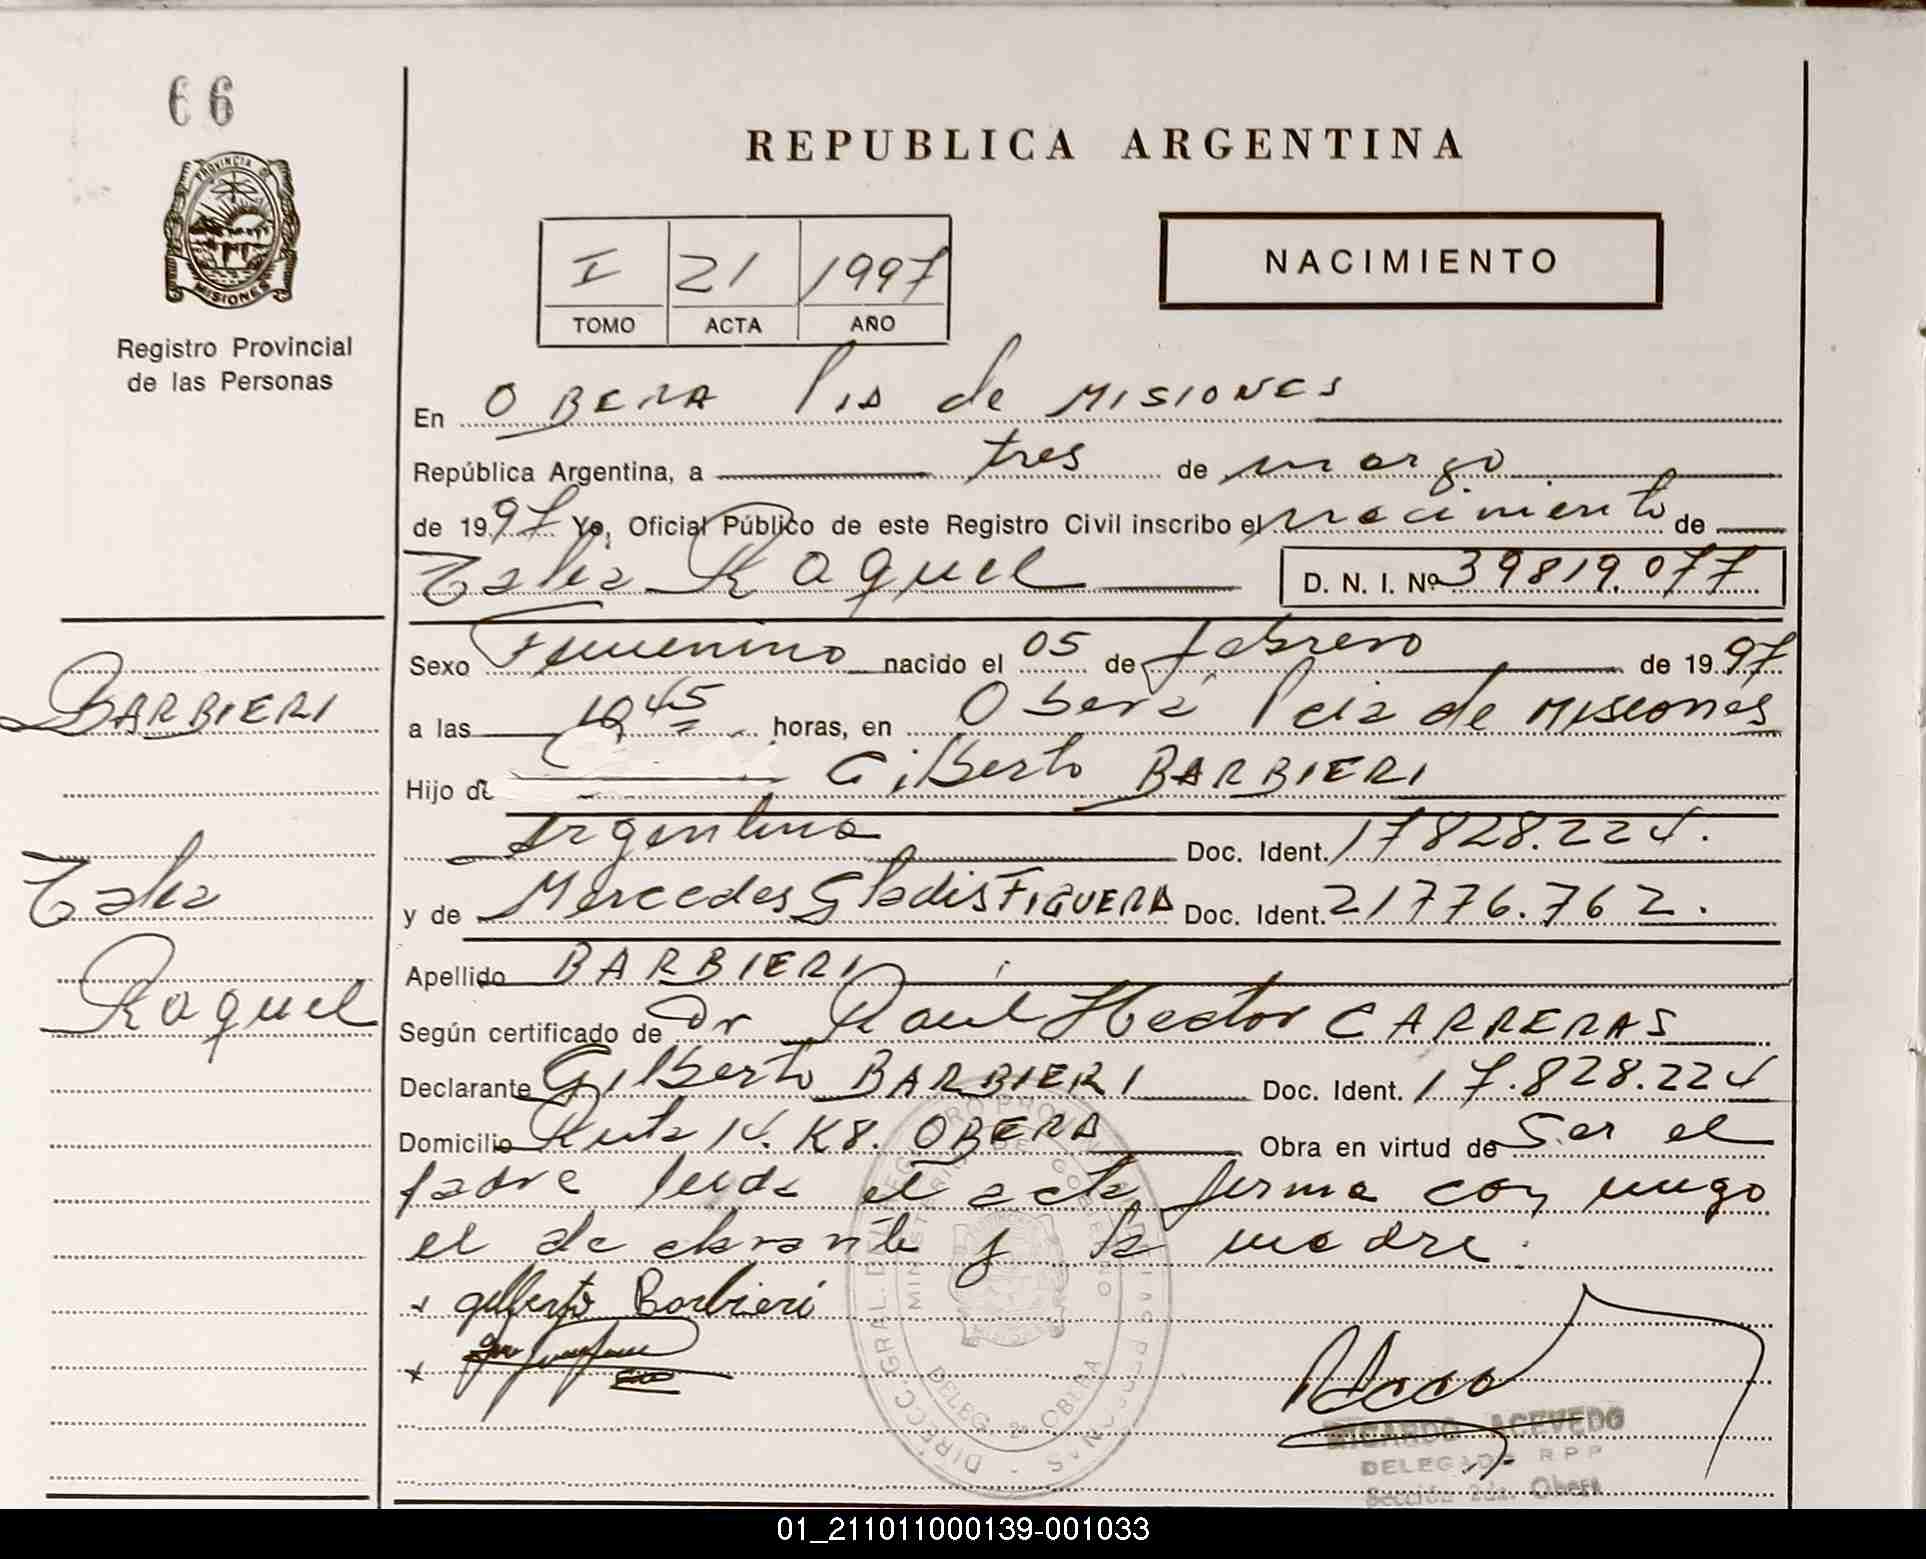 66
PROVINCIA DE
MISIONES
Registro Provincial
de las Personas
REPUBLICA ARGENTINA
I 21 1997
TOMO ACTA AÑO
NACIMIENTO
En OBERA Pia de MISIONES
República Argentina, a tres de marzo
de 1997 Yo, Oficial Público de este Registro Civil inscribo el nacimiento de
Talia Raquel D. N. I. Nº 39819.077
Sexo Femenino nacido el 05 de febrero de 1997
a las 45 horas, en Oberá Pcia de Misiones
Hijo de Gilberto BARBIERI
argentino Doc. Ident. 17828.224.
y de Mercedes Gladis FIGUERA Doc. Ident. 21776.762.
Apellido BARBIERI
Según certificado de Dr Raul Hector CARRERAS
Declarante Gilberto BARBIERI Doc. Ident. 17.828.224
Domicilio Ruta 14. K8. OBERA Obra en virtud de Ser el
padre leida el acta firma con migo
el declarante y la madre.
BARBIERI
Talia
Raquel
gilberto Barbieri
DIRECC. GRAL. DEL REGISTRO PROVINCIAL DE LAS PERSONAS
MINISTERIO DE GOBIERNO
DELEG. 2ª OBERA
RICARDO ACEVEDO
DELEGADO RPP
Sección 2da. Oberá
01_211011000139-001033